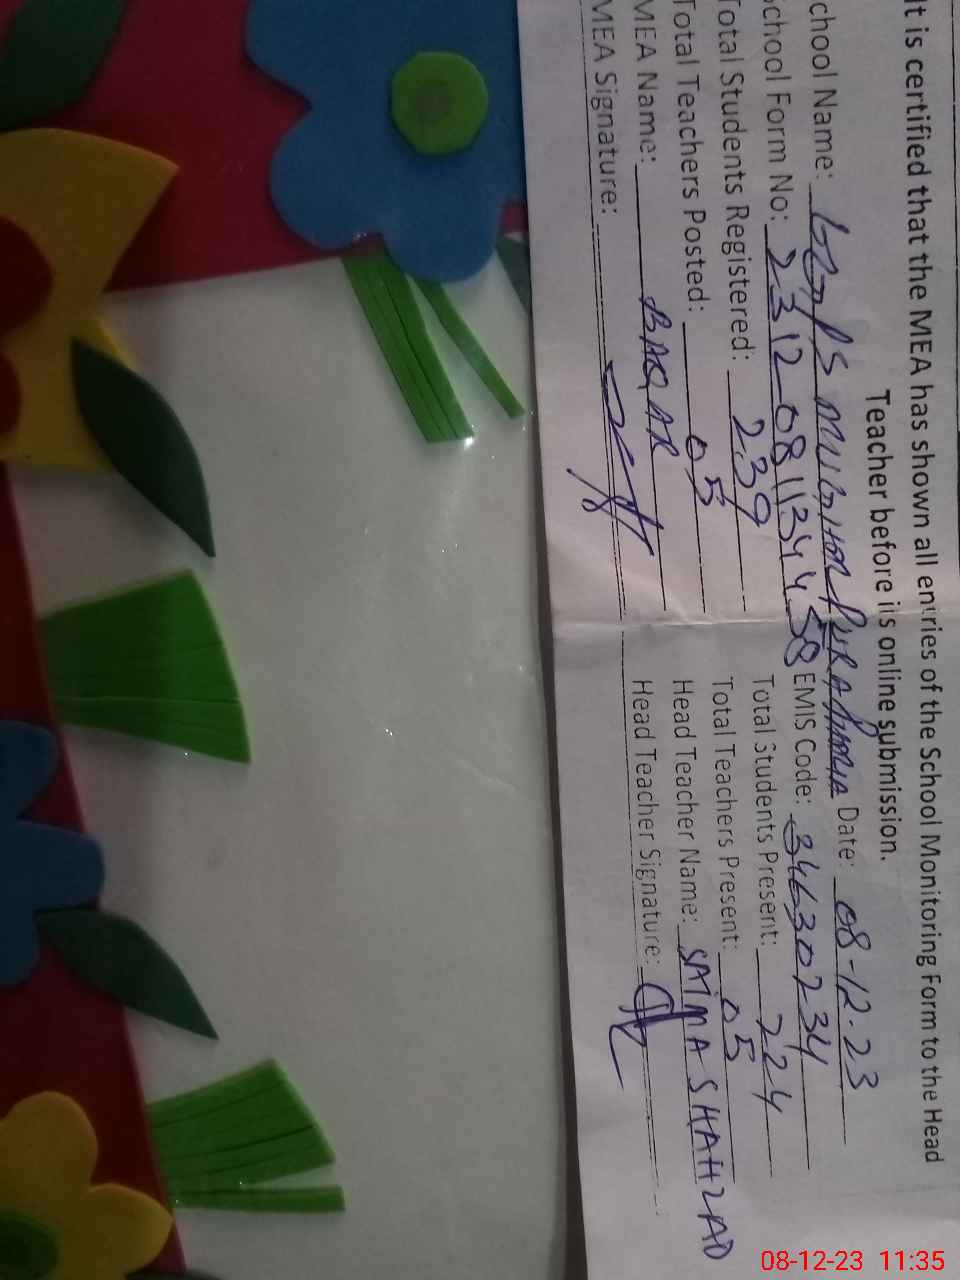 It is certified that the MEA has shown all entries of the School Monitoring Form to the Head
Teacher before its online submission.
chool Name: PURA Date: 08-12-23
School Form No: 2312081134458 EMIS Code: 34630234
Total Students Registered: 239 Total Students Present: 224
Total Teachers Posted: 05 Total Teachers Present: 05
MEA Name: BAQAR Head Teacher Name: SAIMA SHAHZAD
MEA Signature: Head Teacher Signature:
08-12-23 11:35